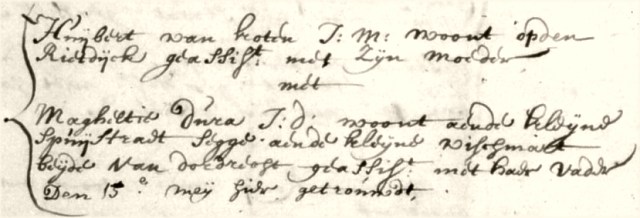 Huijbert van koten J: M: woont opden
Rietdijck geassist: met Zijn moeder
met
Magheltie Dura J: d: woont aende kleijne
Spuijstraat segge aende kleijne vischmart
beijde van dordrecht geassist: met haer vader
Den 15e meij hier getrouwdt,